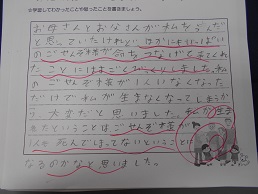 ※学習してわかったことや思ったことを書きましょう。
お母さんとお父さんが私をうんだ
と思っていたけれど、ほかにもいっぱい
のごせんぞ様が命をつなげてきてくれ
たことにはすごくびっくりしました。私
のごせんぞ様が1人いなくなった
だけで私が生まれなくなってしまうか
ら大変だと思いました。私が
ということはごせんぞ様
1人も死んでしまってないということに
なるのかなと思いました。